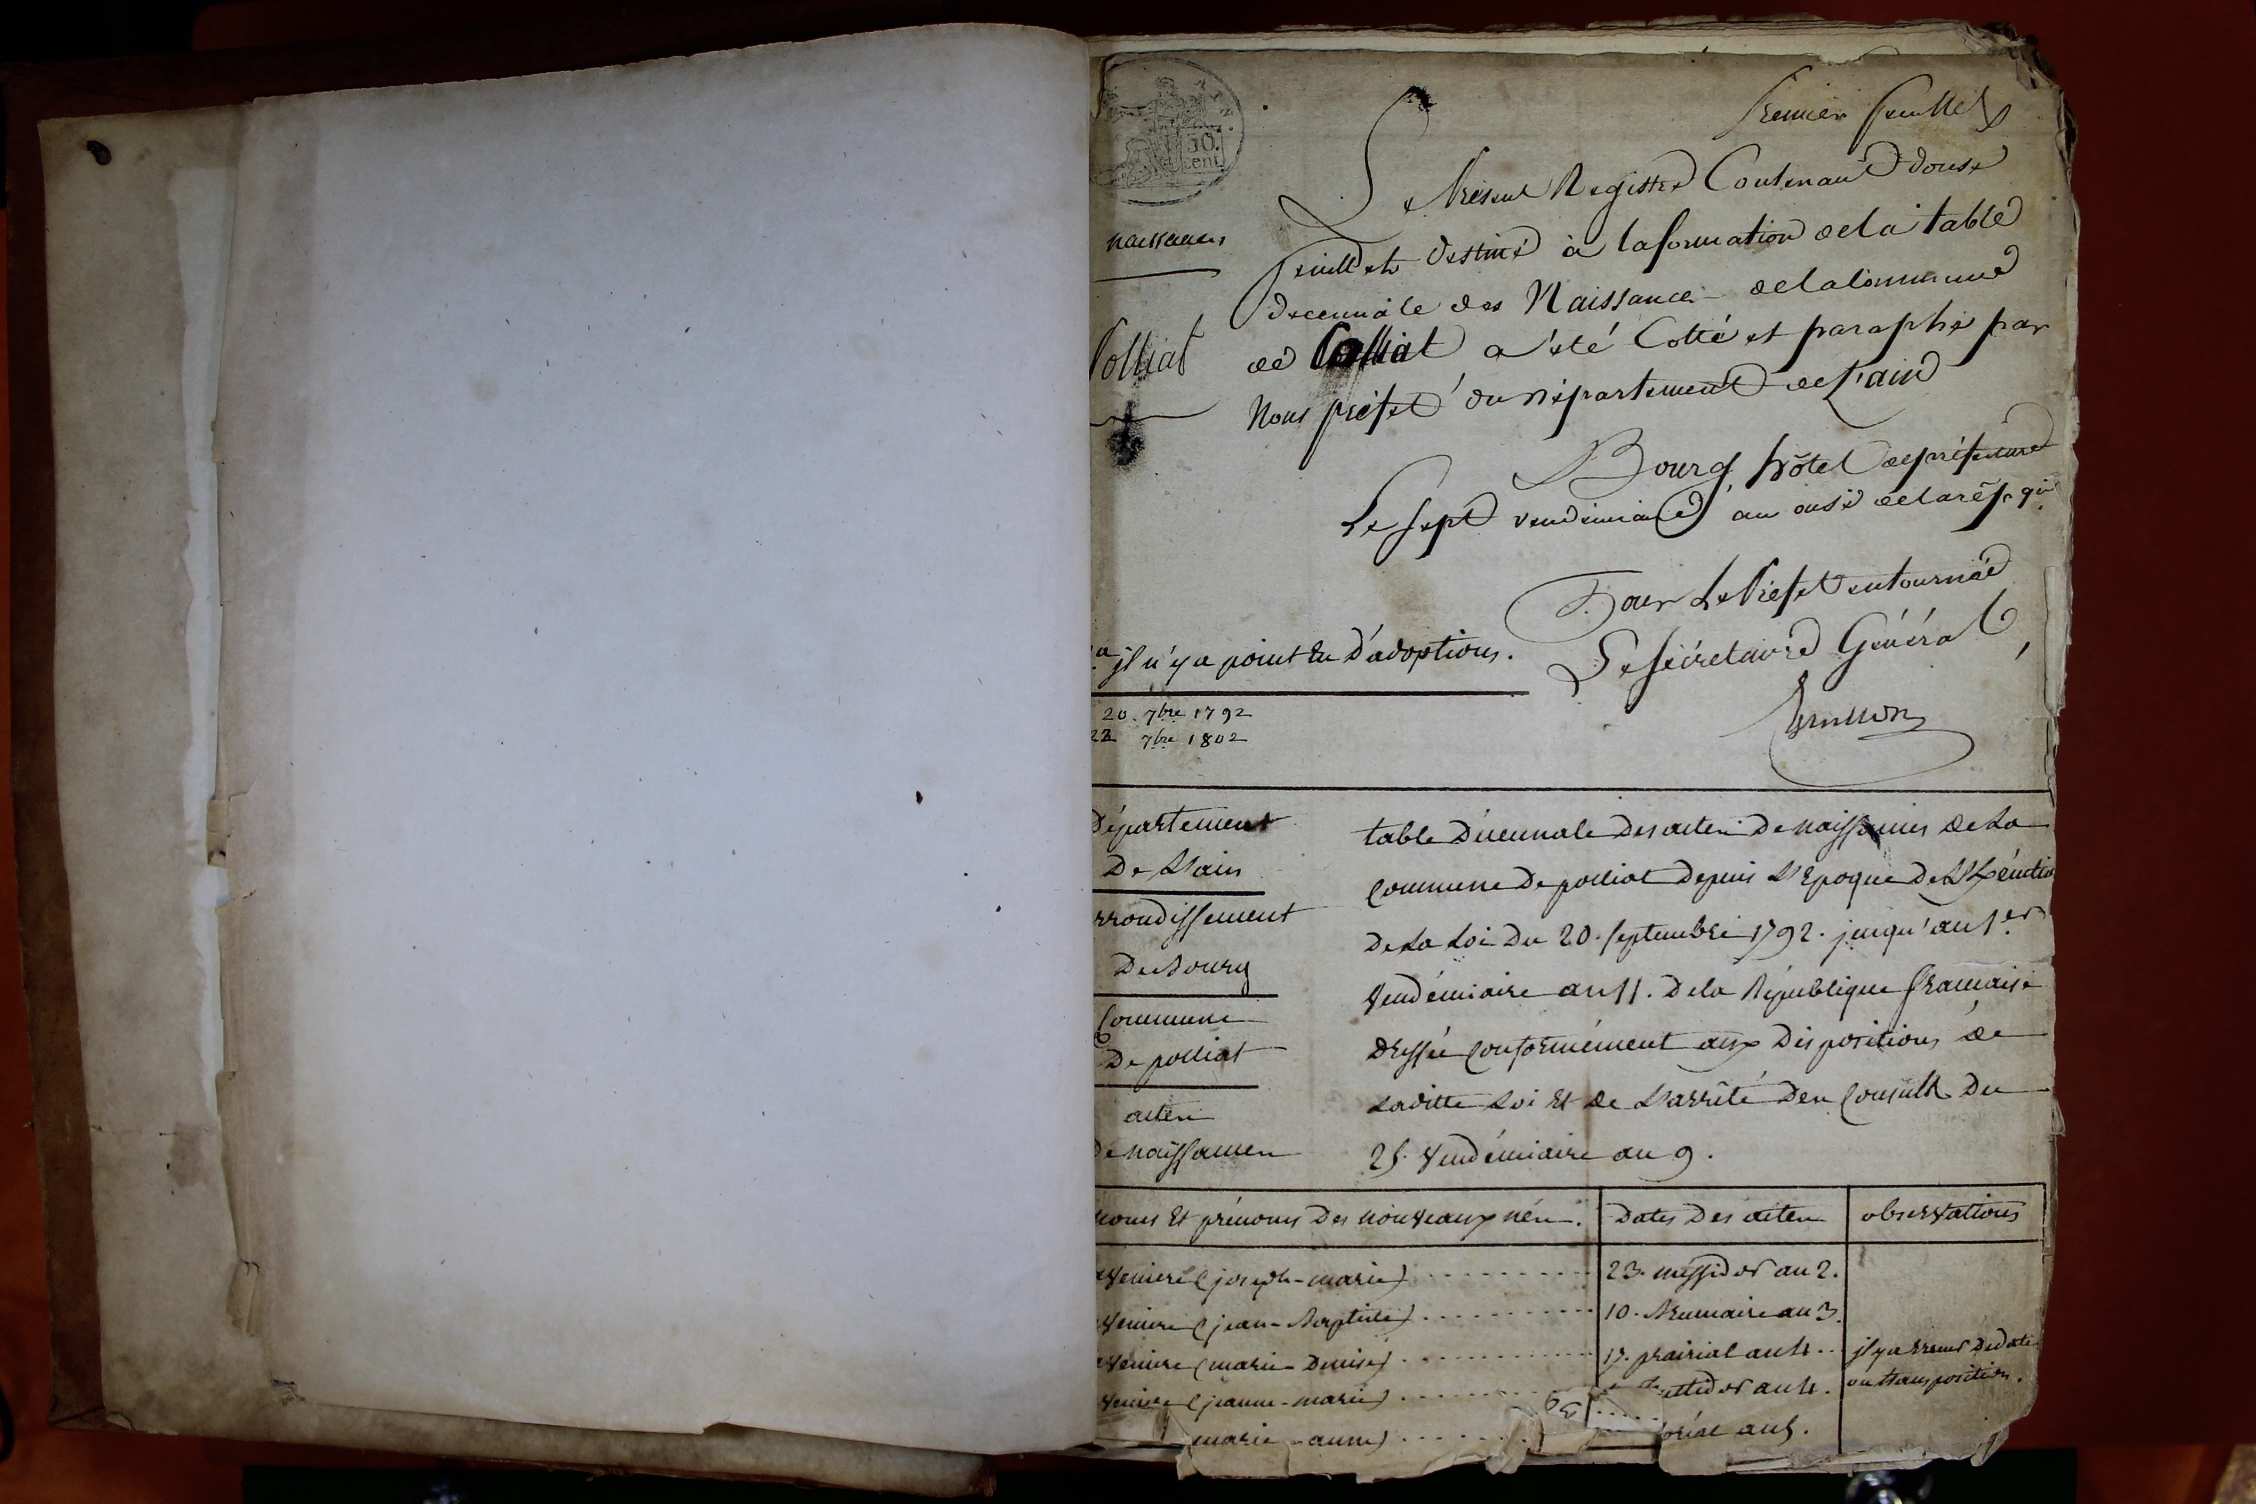 50.
cent.
Premier feuillet
naissances
Le Présent Registre Contenant douse
feuillets destiné à la formation de la table
decennale des Naissances de la Commune
Polliat
de Polliat a été Cotté et paraphé par
Nous préfet du département de l'ain
Bourg, hôtel de préfecture
Le sept vendemiaire an onse de la rép. que
Pour Le Préfet en tournée
Le Sécretaire Général
a il n'y a point Eu D'adoptions.
20. 7bre 1792
22 7bre 1802
Département
De L'ain
rrondissement
De Bourg
Commune
De polliat
actes
De naissances
table Décennale Des actes De naissances de La
Commune De polliat Depuis L'Epoque De L'Exécutio
De La Loi Du 20. septembre 1792. jusqu'au 1.er
Vendémiaire an 11. De la République française
Dressée Conformément aux Dispositions de
Laditte Loi Et de L'arrêté Des Consuls Du
25. Vendémiaire an 9.
noms Et prénoms Des nouveaux nés. Dates Des actes observations
veniere (joseph-marie) 23. messidor an 2.
veniere (jean-Baptiste) 10. Brumaire an 3.
veniere (marie-Denise) 17. prairial an 4. il y a Erreur De date
veniere (jeanne-marie) an 4. ou transposition.
marie-anne) an 5.